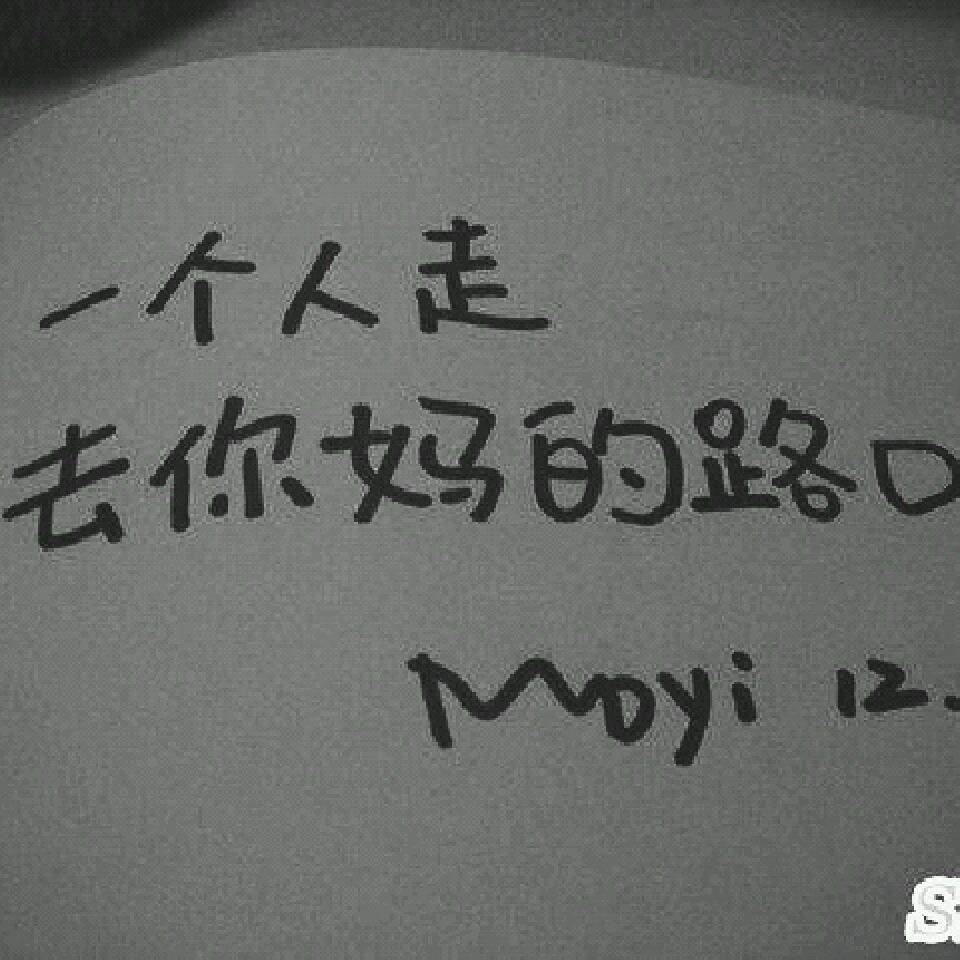 一个人走
去你妈的路口
Moyi 12.